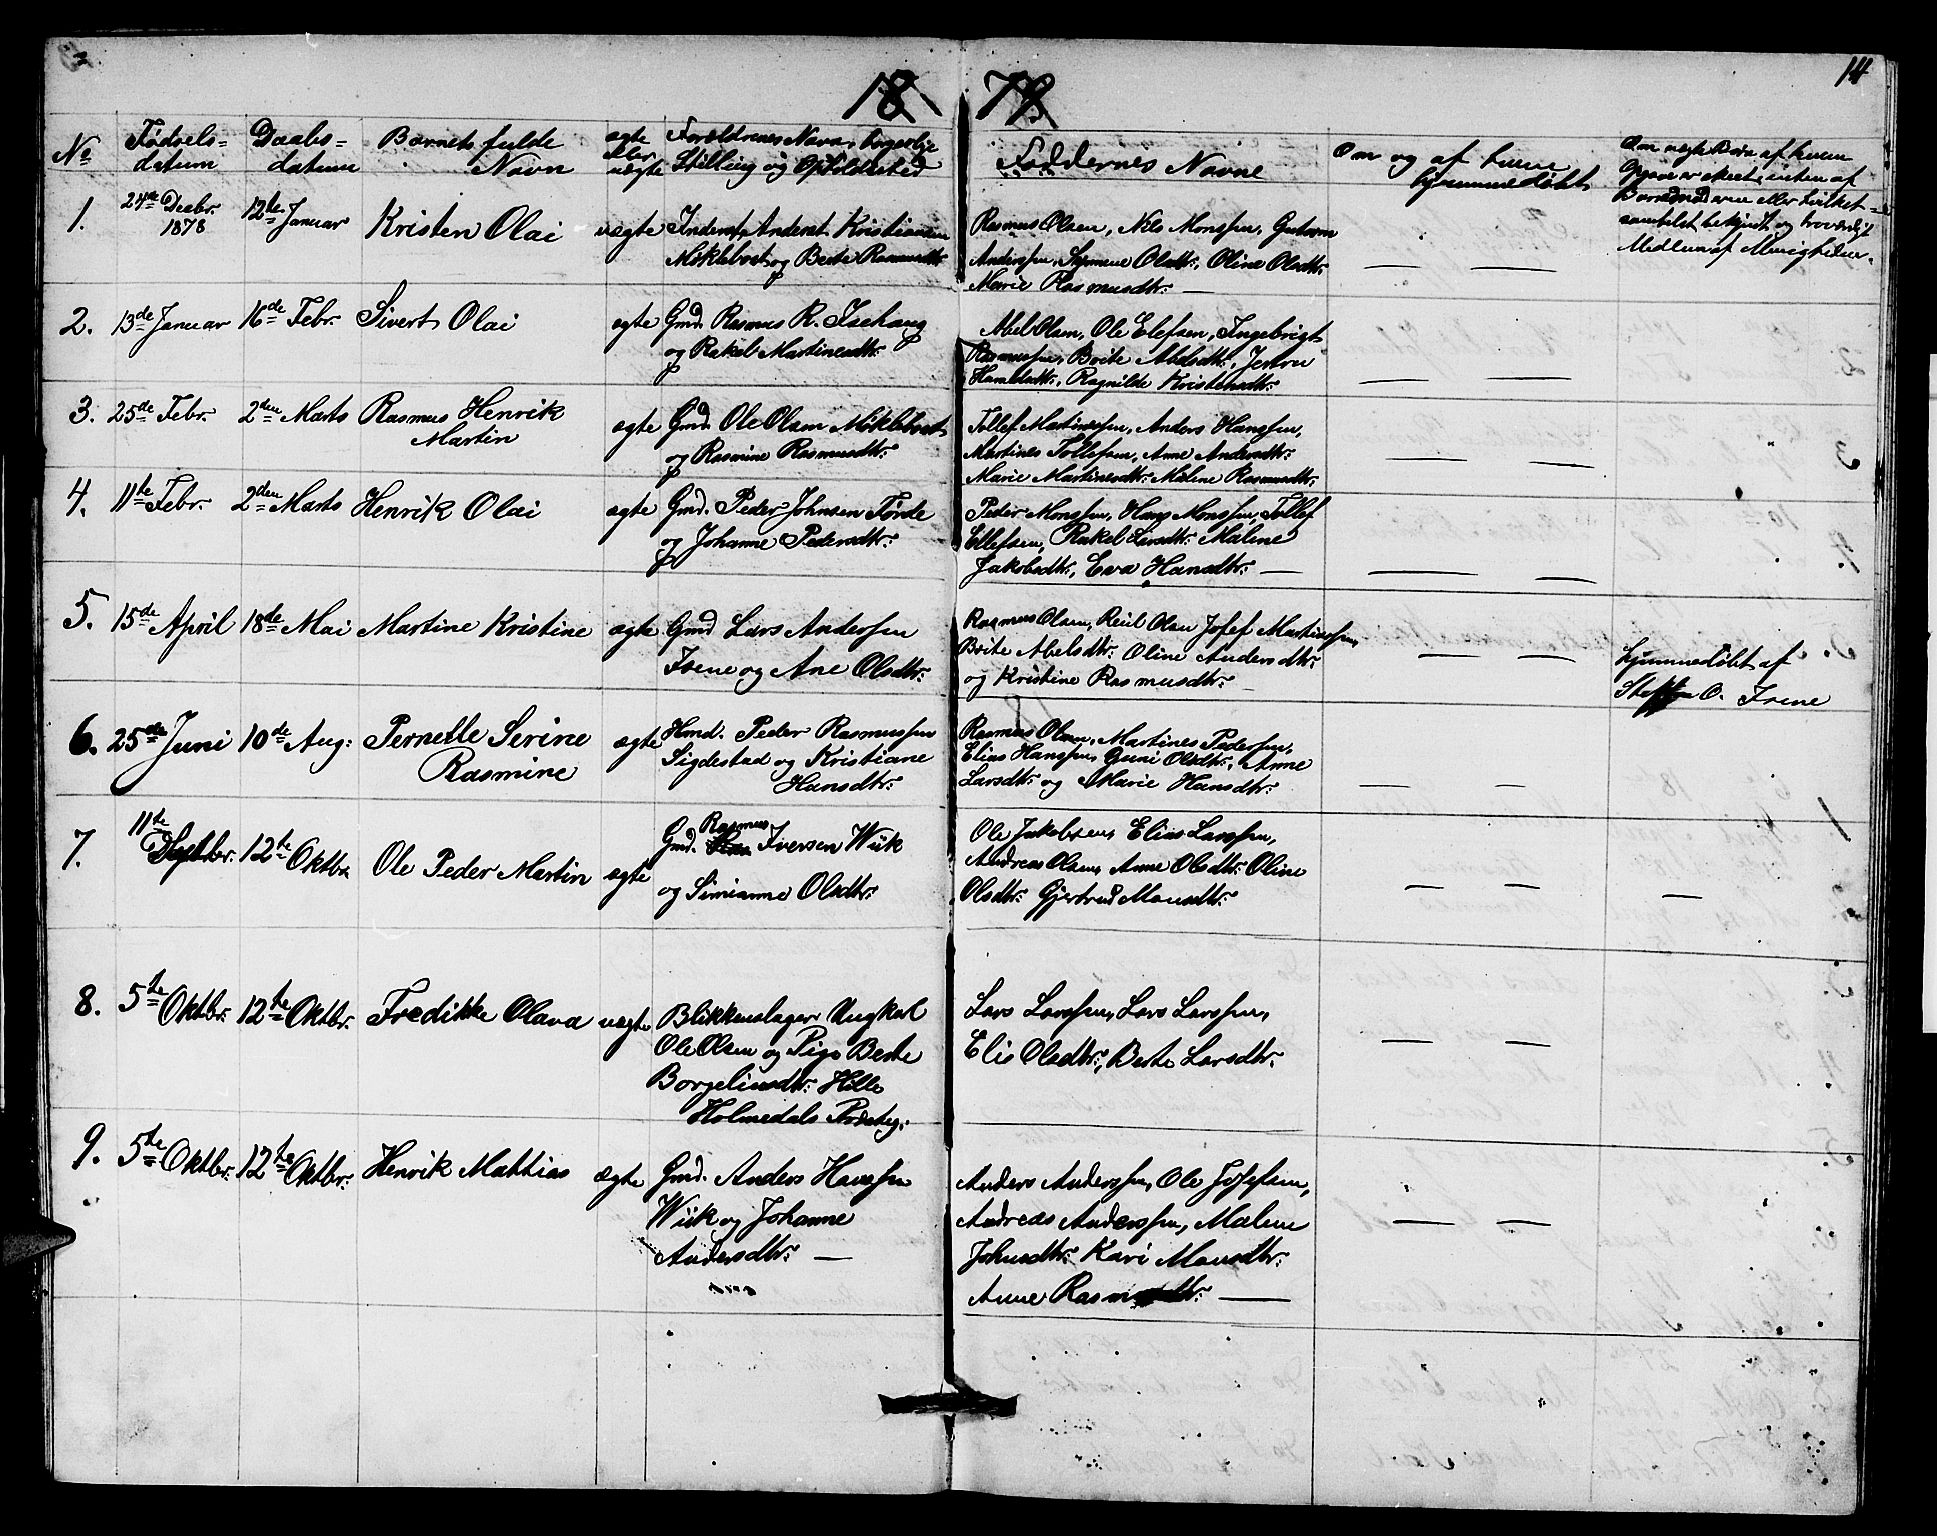 14
18 79.
No
Fødsels-
datum
Daabs-
datum
Barnets fulde
Navn
ægte
eller
uægte
Forældrenes Navn, borgerlige
Stilling og Opholdssted
Faddernes Navne
Om og af hvem
hjemmedøbt
Om uægte Børn af hvem
Opgave er skeet, enten af
eller hvilket
samtlst bekjendt og troværdigt
Medlem af Menigheden.
1.
24de Decbr.
1878
12te Januar
Kristen Olai
uægte
Anderst Kristiansen
Miklebost og Berte Rasmusdtr.
Rasmus Olsen, Nils Monssen, Guttorm
Anderssen, Olsdtr., Oline Olsdtr.
Marie Rasmusdtr. —
— —
2.
13de Januar
16de Febr.
Sivert Olai
ægte
Gmd. Rasmus R. Isehaug
og Rakel Martinusdtr.
Abel Olsen, Ole Elefsen, Ingebrigt
Rasmussen, Brite Abelsdtr.,
Ragnilde Kristensdtr.
— —
3.
25de Febr.
2den Marts
Rasmus Henrik
Martin
ægte
Gmd. Ole Olsen Miklebost
og Rasmine Rasmusdtr.
Tollef Martinussen, Anders Hanssen,
Martines Tollefsen, Anne Andersdtr.
Marie Martinesdtr. Malene Rasmusdtr.
— —
4.
11te Febr.
2den Marts
Henrik Olai
ægte
Gmd. Peder Johnsen Førde
og Johanne Pedersdtr.
Peder Monssen, Hans Monssen, Tollef
Ellefsen, Rakel Larsdtr. Maline
Jakobsdtr., Eva Hansdtr. —
— —
5.
15de April
18de Mai
Martine Kristine
ægte
Gmd Lars Anderssen
Isene og Ane Olsdtr.
Rasmus Olsen, Olsen Josef Martinussen,
Brite Abelsdtr. Oline Andersdtr.
og Kristine Rasmusdtr. —
— —
hjemmedøbt af
Steffen O. Isene
6.
25de Juni
10de Aug:
Pernelle Serine
Rasmine
ægte
Hmd. Peder Rasmussen
Sigdestad og Kristiane
Hansdtr.
Rasmus Olsen, Martines Pedersen,
Elias Hanssen, Guni Olsdtr., Anne
Larsdtr. og Marie Hansdtr.
— —
7.
11te
Septbr.
12te Oktbr.
Ole Peder Martin
ægte
Rasmus
Gmd. Iversen Wiik
og Simianne Olsdtr.
Ole Jakobsen, Elias Larssen,
Andreas Olsen, Anne Olsdtr. Oline
Olsdtr. Gjertrud Monsdtr.
— — —
8.
5te Oktbr.
12te Oktbr.
Fredikke Olava
uægte
Blikkenslager Ungkal
Ole Olsen og Pige Berte
Borgelinsdtr. Hille
Holmedals Præsteg.
Lars Larssen, Lars Larssen,
Elis Olsdtr., Berte Larsdtr.
— —
9.
5te Oktbr.
12te Oktbr.
Henrik Mattias
ægte
Gmd. Anders Hanssen
Wiik og Johanne
Andersdtr. —
Anders Anderssen, Ole Josefsen,
Andreas Anderssen, Malene
Johnsdtr. Kari Monsdtr.
Anne Rasmusdtr. —
— —